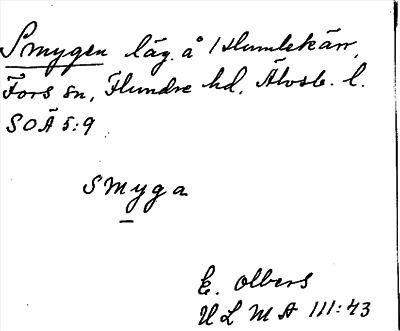 Smygen läg. å / Humlekärr,
Fors sn, Flundre hd, Älvsb. l.
SOÄ 5:9
smyga
E. Olbers
ULMA 111:43